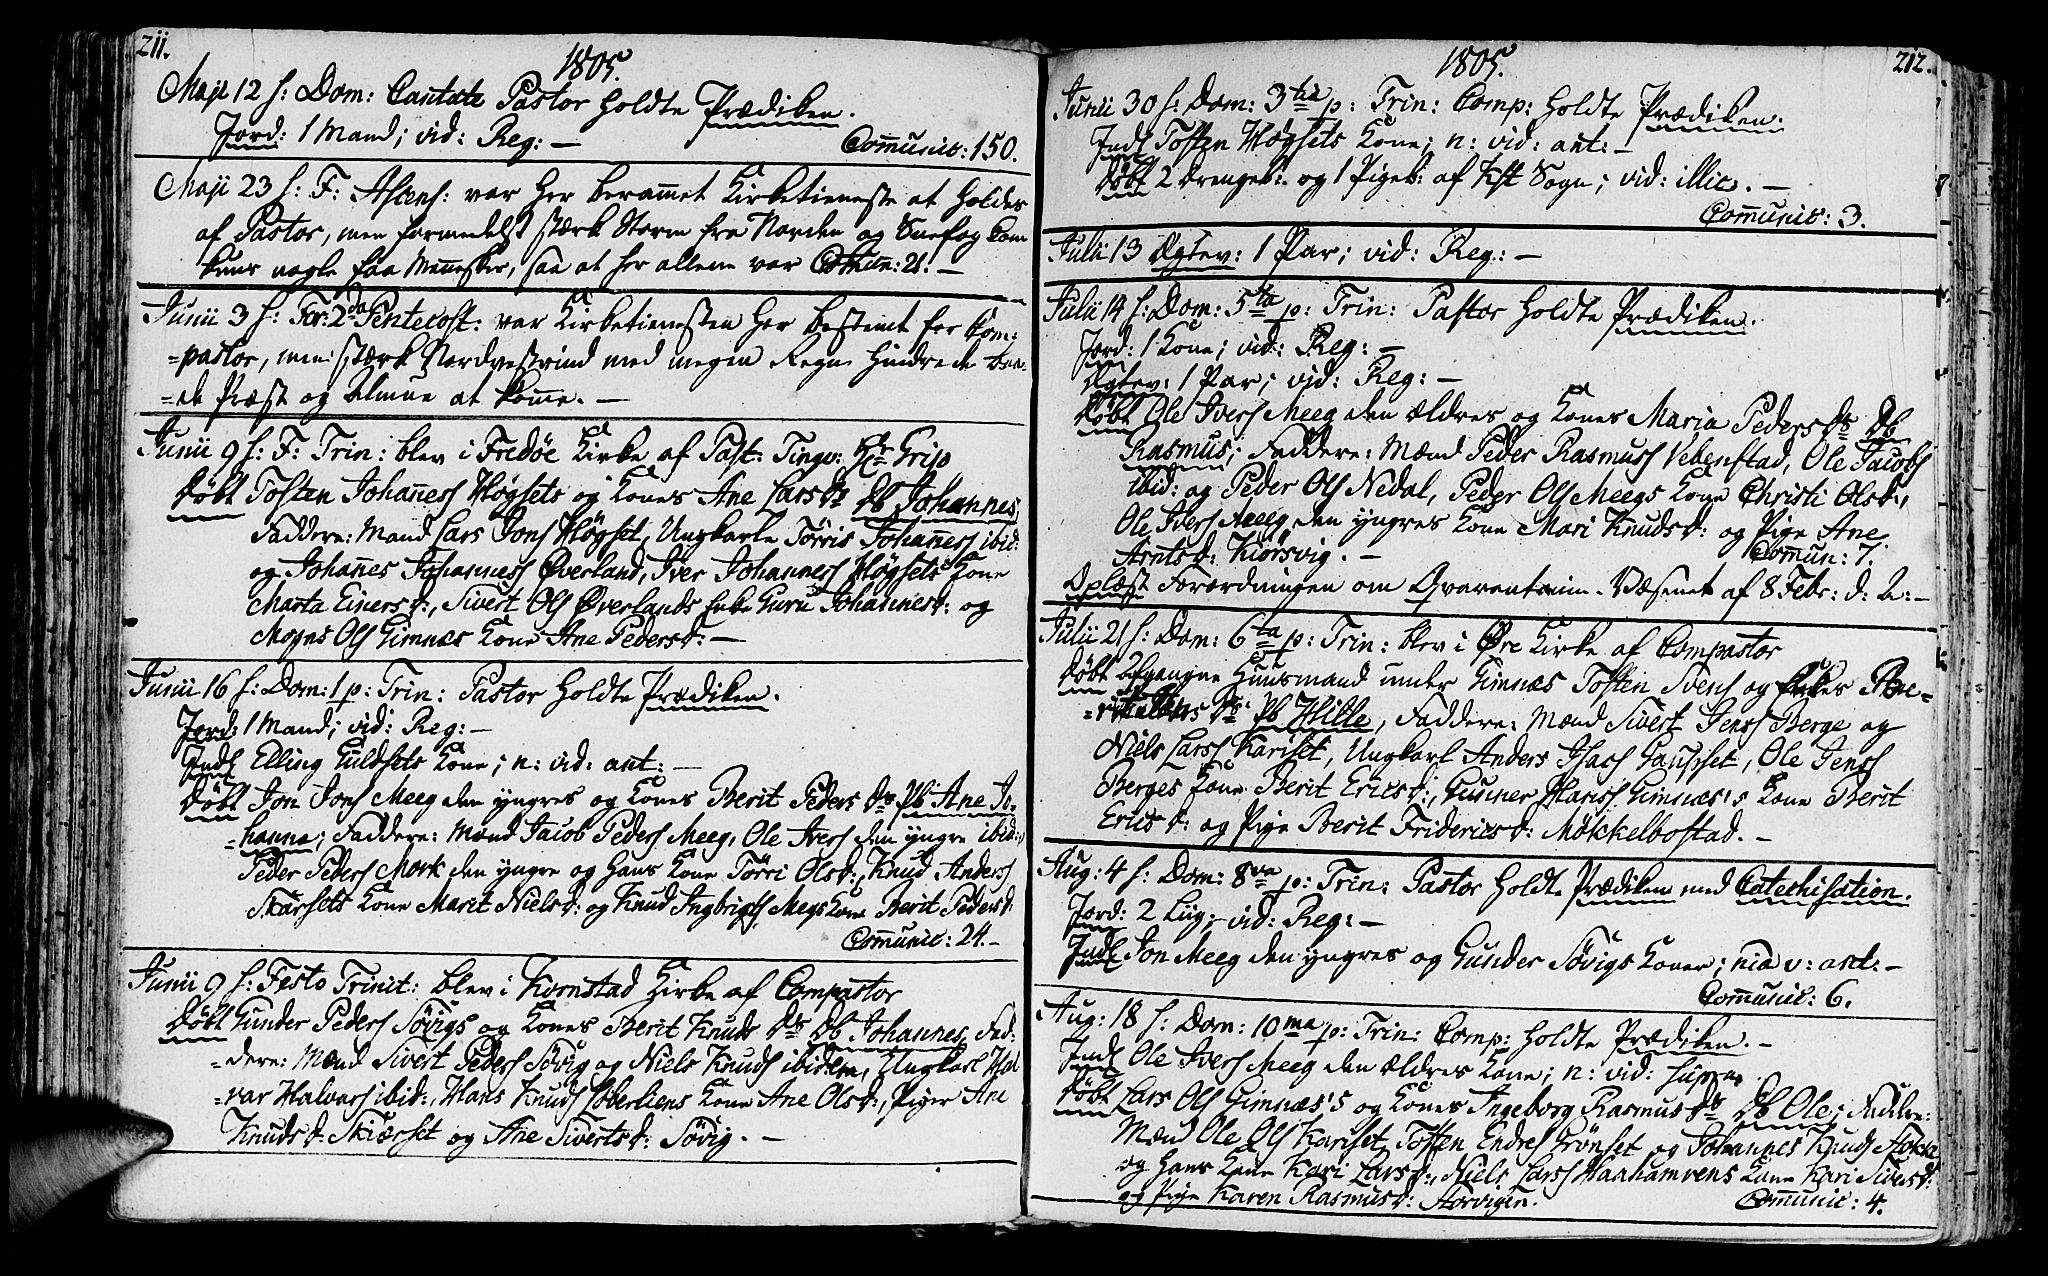 211.
1805.
Maji 12 h: Dom: Cantate Pastor holdte Prædiken.
Jord: 1 Mand; vid: Reg: —
Com̅unic: 150.
Maji 23 h: F: Ascens: var her beram̅et Kirketieneste at holdes
af Pastor, men formedelst stærk Storm fra Norden og Sneefog kom
kuns nogle faa Men̅esker, saa at her allene var Com̅un: 21. —
Junii 3 h: Fer: 2da Pentecost: var Kirketienesten her bestemt for Com-
=pastor, men stærk Nordvestvind med megen Regn hindrede baa-
=de Præst og Almue at kom̅e. —
Junii 9 h: F: Trin: blev i Fredøe Kirke af Past: Tingv: Hr Grip
Døbt Tosten Johan̅ess Høgsets og Kones Ane Larsdr Db Johannes,
Faddere: Mænd Lars Jons Høgset, Ungkarle Tørris Johan̅ess ibid:
og Johan̅es Johanness Øverland, Iver Johanness Høgsets Kone
Marta Einersd:, Sivert Ols Øverlands Enke Guru Johannesd: og
Mogns Ols Gimnæs Kone Ane Pedersd: —
Junii 16 h: Dom: 1 p: Trin: Pastor holdte Prædiken.
Jord: 1 Mand; vid: Reg: —
Indl Elling Guldsets Kone; n: vid: ant: —
Døbt Jon Jons Meeg den yngres og Kones Berit Pedersdr Pb Ane Jo-
=hanna; Faddere: Mænd Jacob Peders Meeg, Ole Ivers den yngre ibid:,
Peder Peders Mork den yngre og hans Kone Tørri Olsd:, Knud Anders
Skarsets Kone Marit Nielsd: og Knud Ingbrigts Megs Kone Berit Pedersd:
Com̅unic: 24. —
Junii 9 h: Festo Trinit: blev i Kornstad Kirke af Compastor
Døbt Gunder Peders Søvigs og Kones Berit Knudsdr Db Johannes, Fad-
=dere: Mænd Sivert Peders Søvig og Niels Knuds ibidem, Ungkarl Hal
=var Halvors ibid:, Hans Knuds Loberliens Kone Ane Olsd:, Piger Ane
Knudsd: Skiærset og Ane Sivertsd: Søvig. —
212.
1805.
Junii 30 h: Dom: 3tia p: Trin: Comp: holdte Prædiken.
Indl Tosten Høgsets Kone; n: vid: ant: —
Døbt 2 Drengeb: og 1 Pigeb: af Kst Sogn; vid: illic. —
Com̅unic: 3.
Julii 13 Egtev: 1 Par; vid: Reg: —
Julii 14 h: Dom: 5ta p: Trin: Pastor holdte Prædiken.
Jord: 1 Kone; vid: Reg: —
Egtev: 1 Par; vid: Reg: —
Døbt Ole Ivers Meeg den ældres og Kones Maria Pedersdr Db
Rasmus; Faddere: Mænd Peder Rasmuss Vebenstad, Ole Jacobs
ibid: og Peder Ols Nedal, Peder Ols Meegs Kone Christi Olsd:,
Ole Ivers Meeg den yngres Kone Mari Knudsd: og Pige Ane
Arntsd: Kiørsvig. —
Com̅un: 7.
Oplæst Forordningen om Qvarantain-Væsenet af 8 Febr: d: A: —
Julii 21 h: Dom: 6ta p: Trin: blev i Øre Kirke af Compastor
Døbt afgangne Huusmand under Gimnæs Tosten Svens og Enkes
Pb Hille, Faddere: Mænd Sivert Jens Berge og
Niels Lars Kariset, Ungkarl Anders Isacs Gaupset, Ole Jens
Berges Kone Berit Ericsd:, Gunner Hariss Gimnæs's Kone Berit
Ericsd: og Pige Berit Fridericsd: Møkkelbostad. —
Aug: 4 h: Dom: 8va p: Trin: Pastor holdte Prædiken med Catechisation.
Jord: 2 Liig; vid: Reg: —
Indl Jon Meeg den yngres og Gunder Søvigs Koner; nia v: ant: —
Com̅unic: 6.
Aug: 18 h: Dom: 10ma p: Trin: Comp: holdte Prædiken. —
Indl Ole Ivers Meeg den ældres Kone; n: vid: supra.
Døbt Lars Ols Gimnæs's og Kones Ingeborg Rasmusdr Db Ole; Faddre:
Mænd Ole Ols Kariset, Tosten Endres Grønset og Johannes Knuds
og hans Kone Kari Larsd:, Niels Lars Haahamrens Kone Kari Siversd:
og Pige Karen Rasmusd: Storvigen.
Com̅unic: 4.